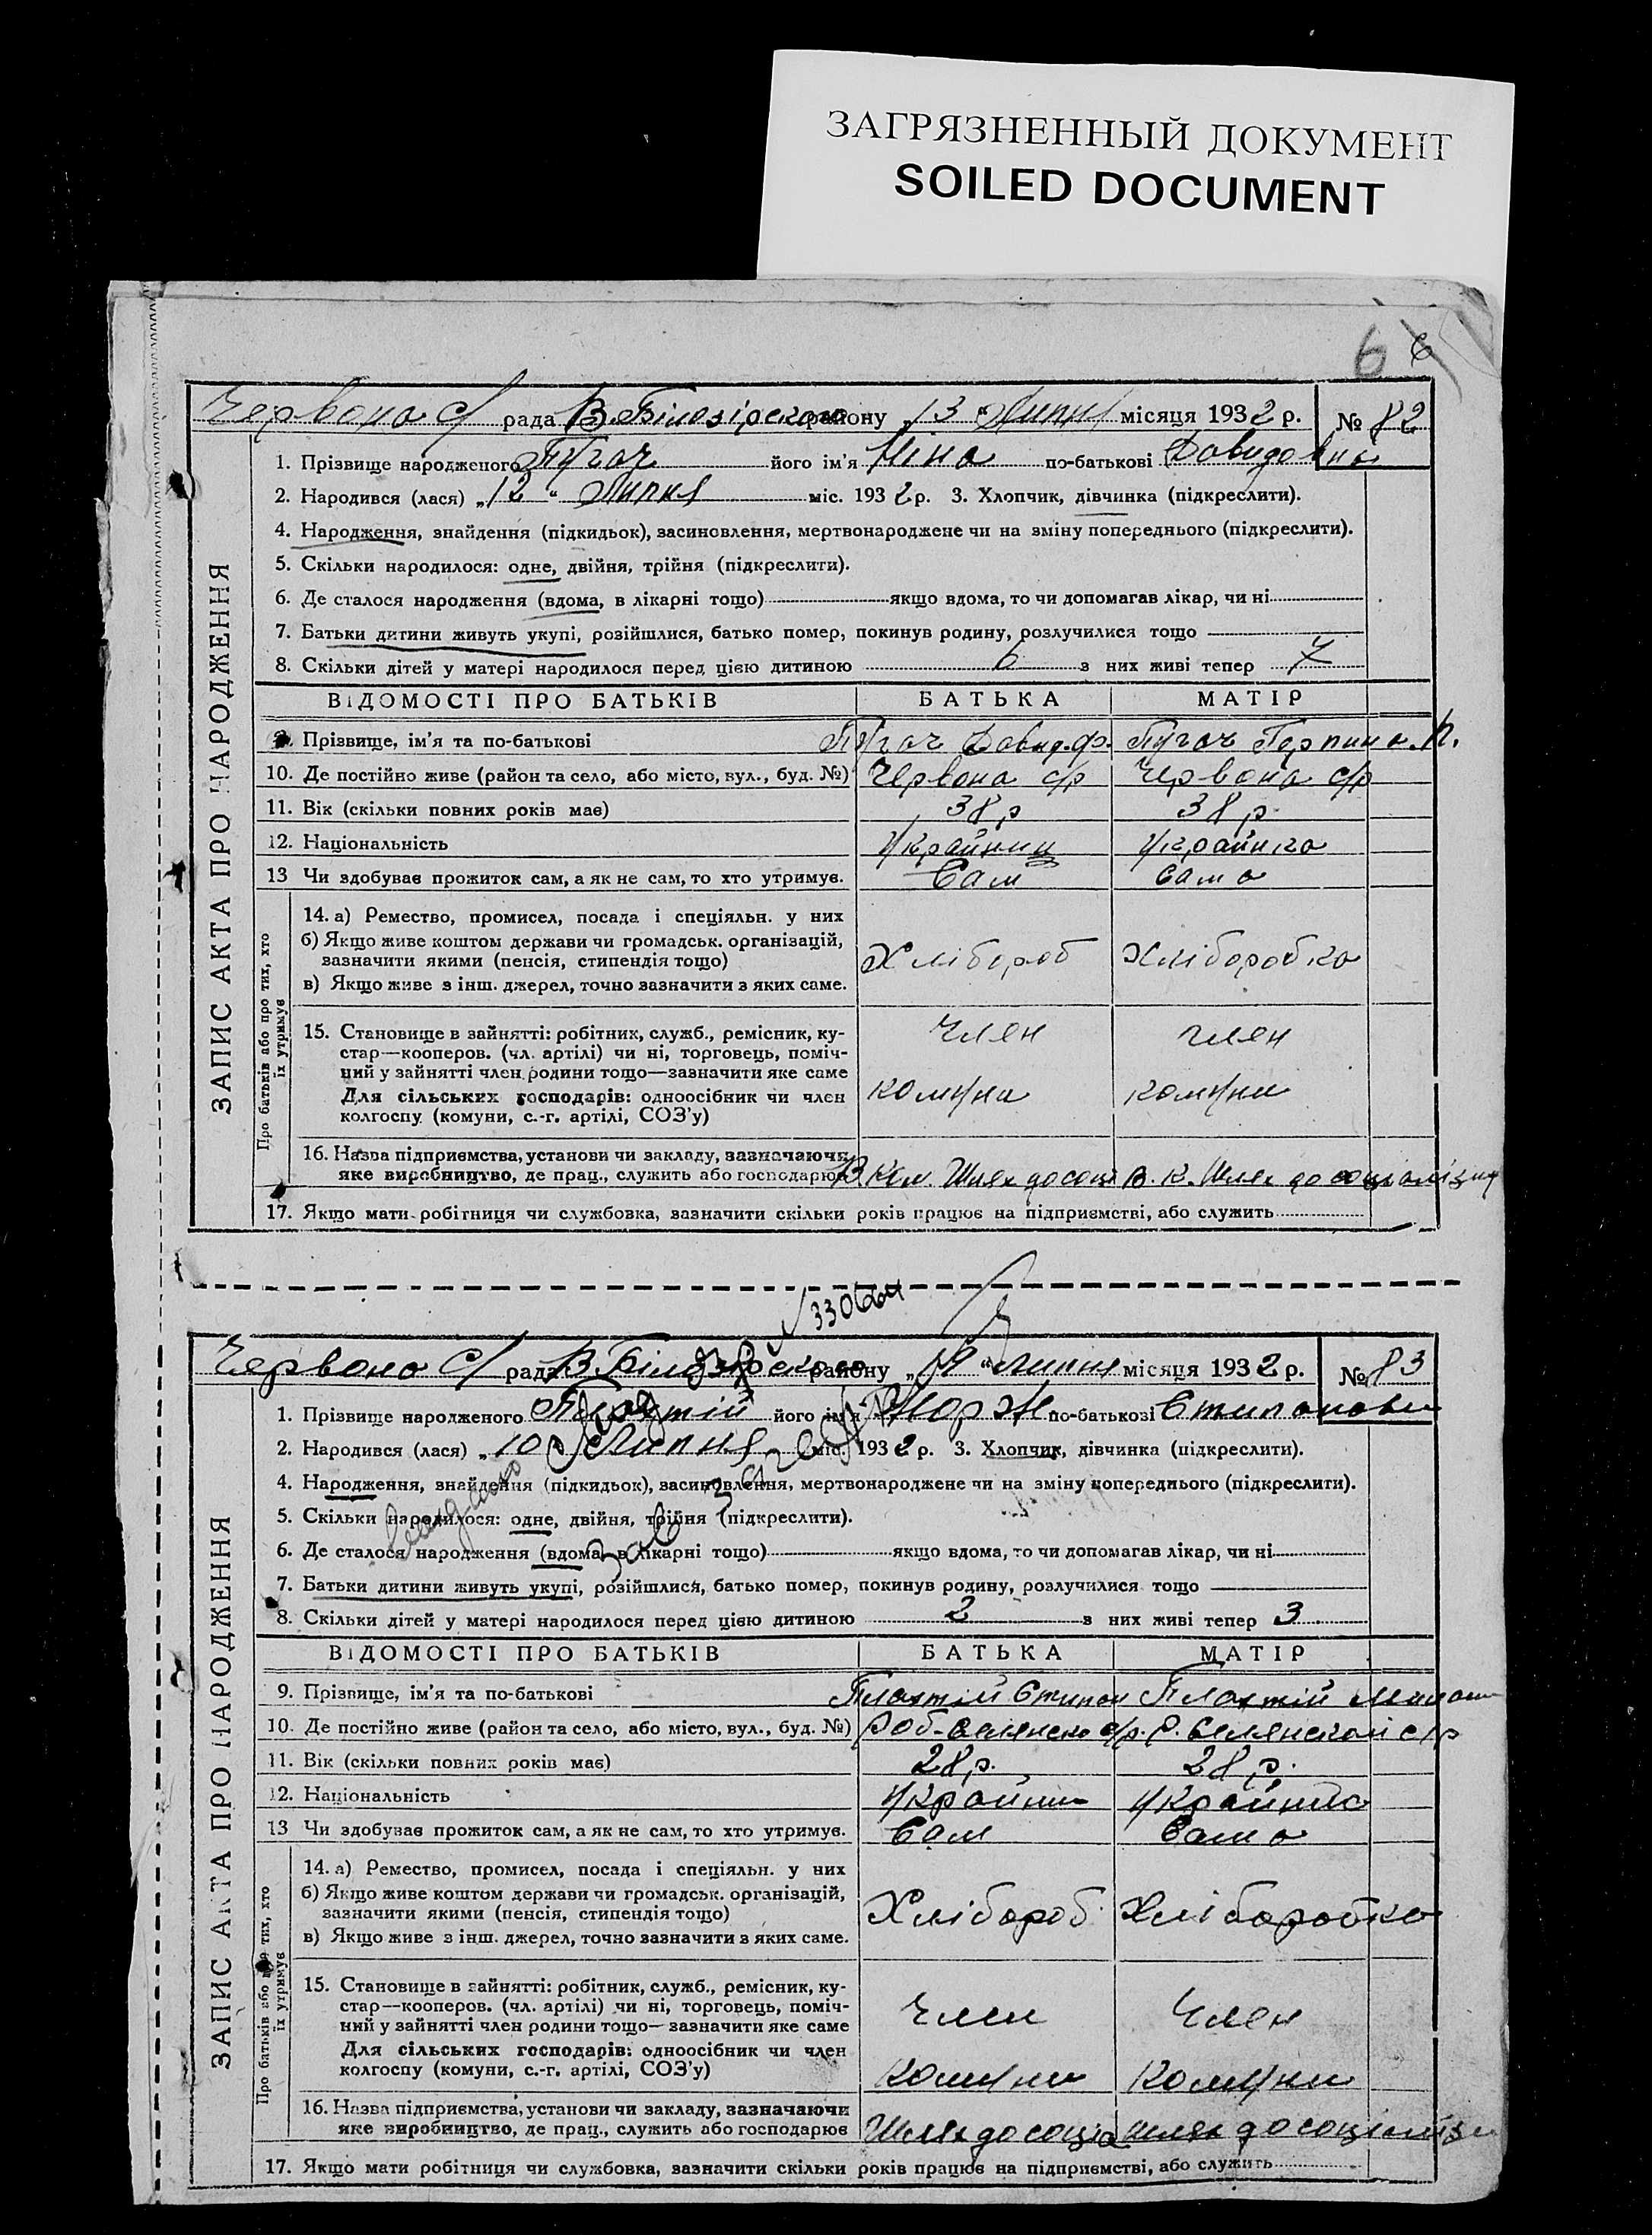 ЗАГРЯЗНЕННЫЙ ДОКУМЕНТ
SOILED DOCUMENT
6 6
Червона с/ рада В Білозірского району „13 “ Липня місяця 1932 р. № 82
ЗАПИС АКТА ПРО НАРОДЖЕННЯ
1. Прізвище народженого Пугач його ім'я Ніна по-батькові Давидовна
2. Народився (лася) „12 “ Липня міс. 1932 р. 3. Хлопчик, дівчинка (підкреслити).
4. Народження, знайдення (підкидьок), засиновлення, мертвонароджене чи на зміну попереднього (підкреслити).
5. Скільки народилося: одне, двійня, трійня (підкреслити).
6. Де сталося народження (вдома, в лікарні тощо) якщо вдома, то чи допомагав лікар, чи ні
7. Батьки дитини живуть укупі, розійшлися, батько помер, покинув родину, розлучилися тощо
8. Скільки дітей у матері народилося перед цією дитиною 6 з них живі тепер 7
ВІДОМОСТІ ПРО БАТЬКІВ БАТЬКА МАТІР
9. Прізвище, ім'я та по-батькові Пугач Давид.ф. Пугач Горпина. П.
10. Де постійно живе (район та село, або місто, вул., буд. №) Червона с/р Червона с/р
11. Вік (скільки повних років має) 38 р 38 р.
12. Національність Україниц Українка
13 Чи здобував прожиток сам, а як не сам, то хто утримує. Сам Сама
Про батьків або про тих, хто їх утримує
14. а) Ремество, промисел, посада і спеціяльн. у них
б) Якщо живе коштом держави чи громадськ. організацій,
зазначити якими (пенсія, стипендія тощо) Хлібороб Хліборобка
в) Якщо живе з інш. джерел, точно зазначити з яких саме.
15. Становище в зайнятті: робітник, служб., ремісник, ку- Член член
стар—кооперов. (чл. артілі) чи ні, торговець, поміч-
ний у зайнятті член родини тощо—зазначити яке саме
Для сільських господарів: одноосібник чи член комуна комуни
колгоспу (комуни, с.-г. артілі, СОЗ'у)
16. Назва підприємства, установи чи закладу, зазначаючи
яке виробництво, де прац., служить або господарює В. Ком. Шлях до соці В. К. Шлях до соціалізму
17. Якщо мати робітниця чи службовка, зазначити скільки років працює на підприємстві, або служить
330664
Червоно С/ рада В Білозірского району „ “ Липня місяця 1932 р. № 83
ЗАПИС АКТА ПРО НАРОДЖЕННЯ
1. Прізвище народженого Плахтій його ім'я Жорж по-батькові Стипанови
2. Народився (лася) „10 “ Липня міс. 1932 р. 3. Хлопчик, дівчинка (підкреслити).
4. Народження, знайдення (підкидьок), засиновлення, мертвонароджене чи на зміну попереднього (підкреслити).
5. Скільки народилося: одне, двійня, трійня (підкреслити).
6. Де сталося народження (вдома, в лікарні тощо) якщо вдома, то чи допомагав лікар, чи ні
7. Батьки дитини живуть укупі, розійшлися, батько помер, покинув родину, розлучилися тощо
8. Скільки дітей у матері народилося перед цією дитиною 2 з них живі тепер 3
ВІДОМОСТІ ПРО БАТЬКІВ БАТЬКА МАТІР
9. Прізвище, ім'я та по-батькові Плахтій Стипан Плахтій
10. Де постійно живе (район та село, або місто, вул., буд. №) Роб-Селянско с/р. Р. Селянскай с/р
11. Вік (скільки повних років має) 28 р. 28 р.
12. Національність Україниц Українка
13 Чи здобував прожиток сам, а як не сам, то хто утримує. Сам Сама
Про батьків або про тих, хто їх утримує
14. а) Ремество, промисел, посада і спеціяльн. у них
б) Якщо живе коштом держави чи громадськ. організацій,
зазначити якими (пенсія, стипендія тощо) Хлібороб Хліборобка
в) Якщо живе з інш. джерел, точно зазначити з яких саме.
15. Становище в зайнятті: робітник, служб., ремісник, ку-
стар—кооперов. (чл. артілі) чи ні, торговець, поміч- Член Член
ний у зайнятті член родини тощо—зазначити яке саме
Для сільських господарів: одноосібник чи член
колгоспу (комуни, с.-г. артілі, СОЗ'у) Комуни Комуни
16. Назва підприємства, установи чи закладу, зазначаючи
яке виробництво, де прац., служить або господарює Шлях до соція шлях до соціялізм
17. Якщо мати робітниця чи службовка, зазначити скільки років працює на підприємстві, або служить